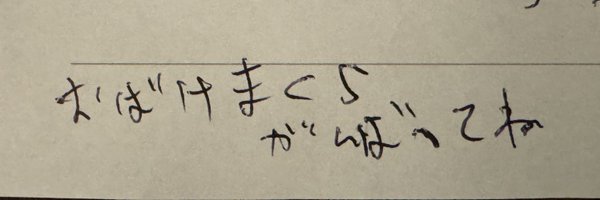 おばけまくら
がんばってね